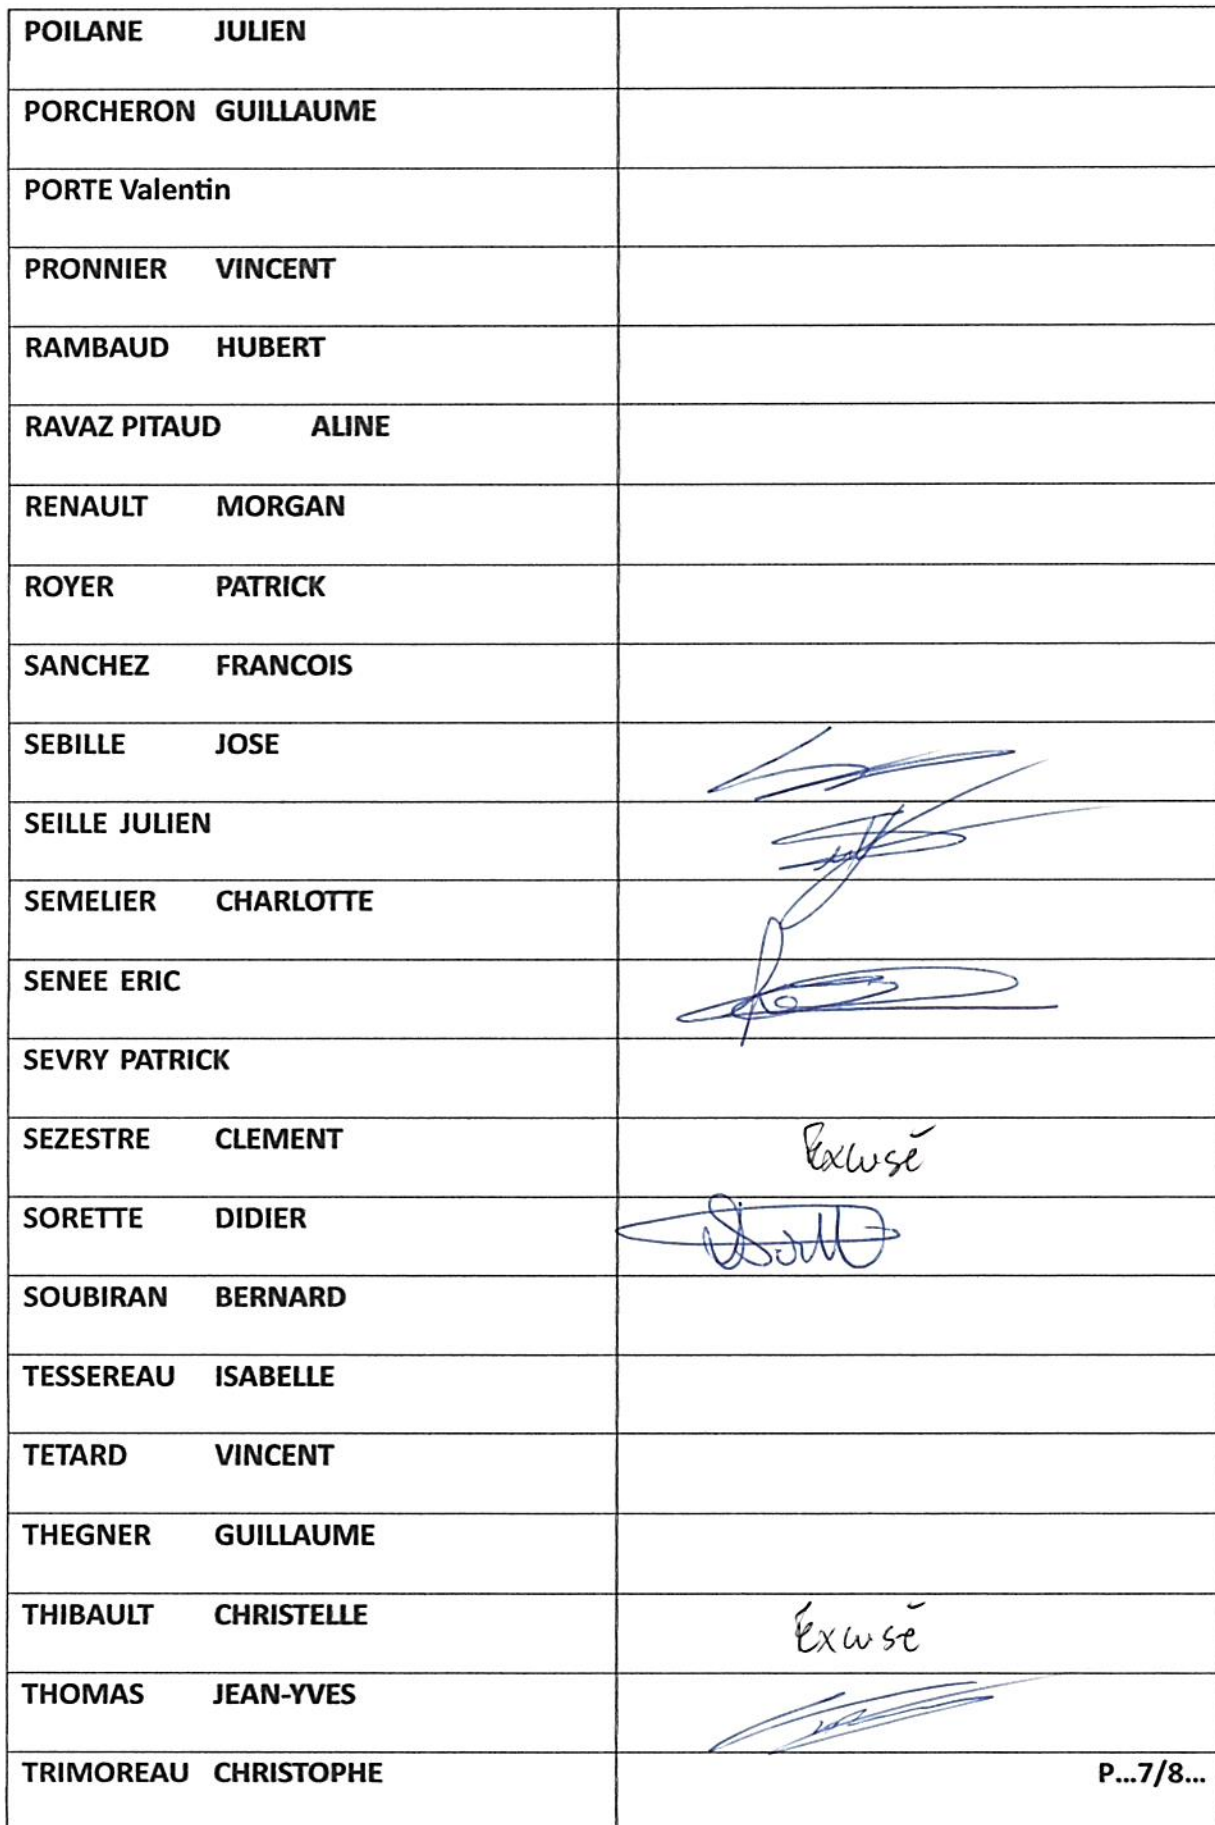 POILANE JULIEN
PORCHERON GUILLAUME
PORTE Valentin
PRONNIER VINCENT
RAMBAUD HUBERT
RAVAZ PITAUD ALINE
RENAULT MORGAN
ROYER PATRICK
SANCHEZ FRANCOIS
SEBILLE JOSE
SEILLE JULIEN
SEMELIER CHARLOTTE
SENEE ERIC
SEVRY PATRICK
SEZESTRE CLEMENT Excusé
SORETTE DIDIER
SOUBIRAN BERNARD
TESSEREAU ISABELLE
TETARD VINCENT
THEGNER GUILLAUME
THIBAULT CHRISTELLE Excusé
THOMAS JEAN-YVES
TRIMOREAU CHRISTOPHE P...7/8...